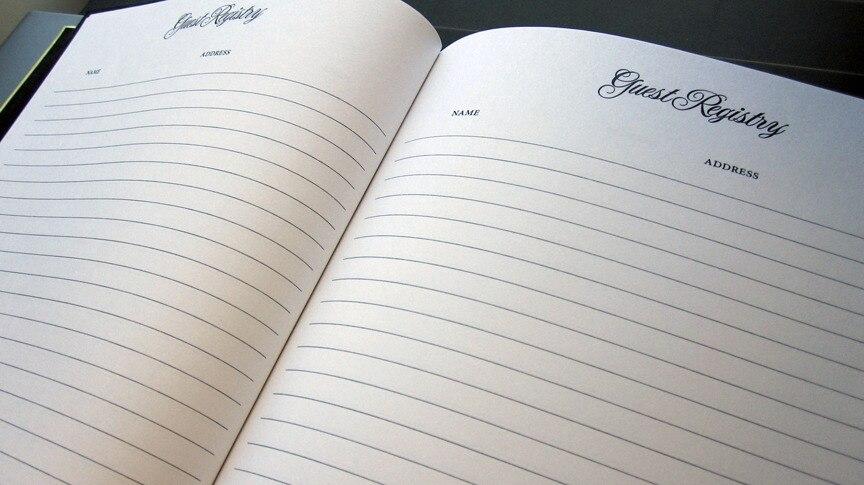 Guest Registry
ADDRESS
NAME
Guest Registry
NAME
ADDRESS